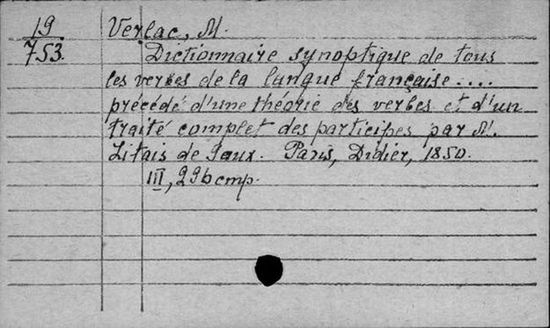 19
753.
Verlac, M.
Dictionnaire synoptique de tous
les verbes de la langue française....
précédé d'une théorie des verbes et d'un
traité complet des participes par M.
Litais de Gaux. Paris, Didier, 1850.
III, 296 стр.